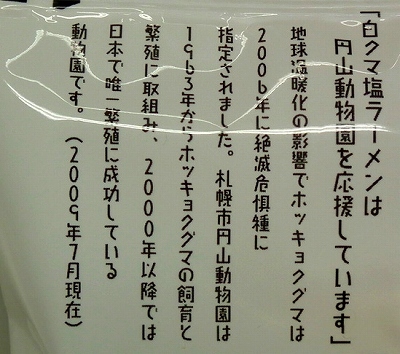 「白クマ塩ラーメンは
円山動物園を応援しています」
地球温暖化の影響でホッキョクグマは
2006年に絶滅危惧種に
指定されました。札幌市円山動物園は
1963年からホッキョクグマの飼育と
繁殖に取組み、2000年以降では
日本で唯一繁殖に成功している
動物園です。(2009年7月現在)